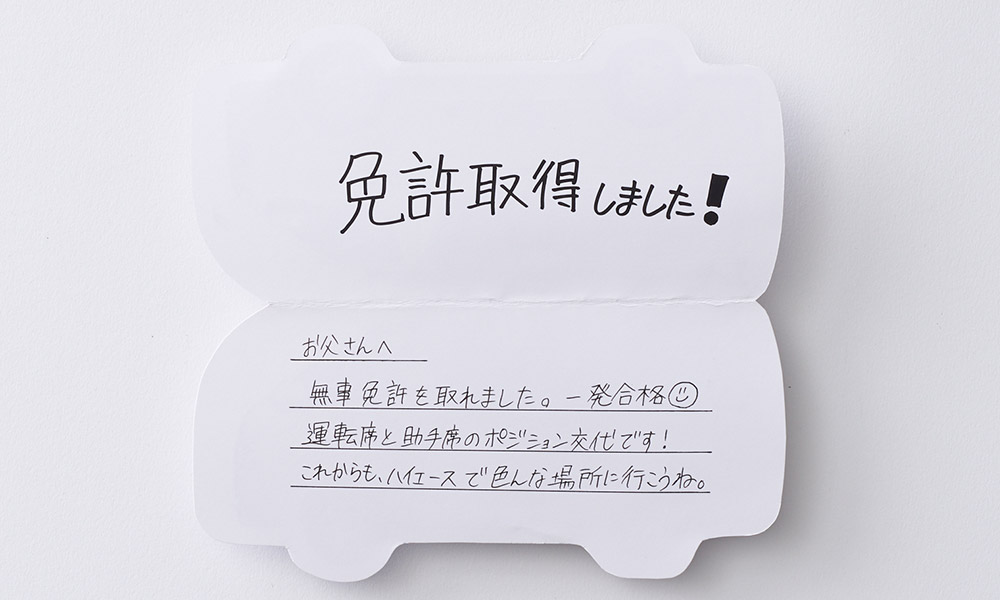 免許取得しました!
お父さんへ
無車免許を取れました。一発合格☺
運転席と助手席のポジション交代です!
これからも、ハイエースで色んな場所に行こうね。